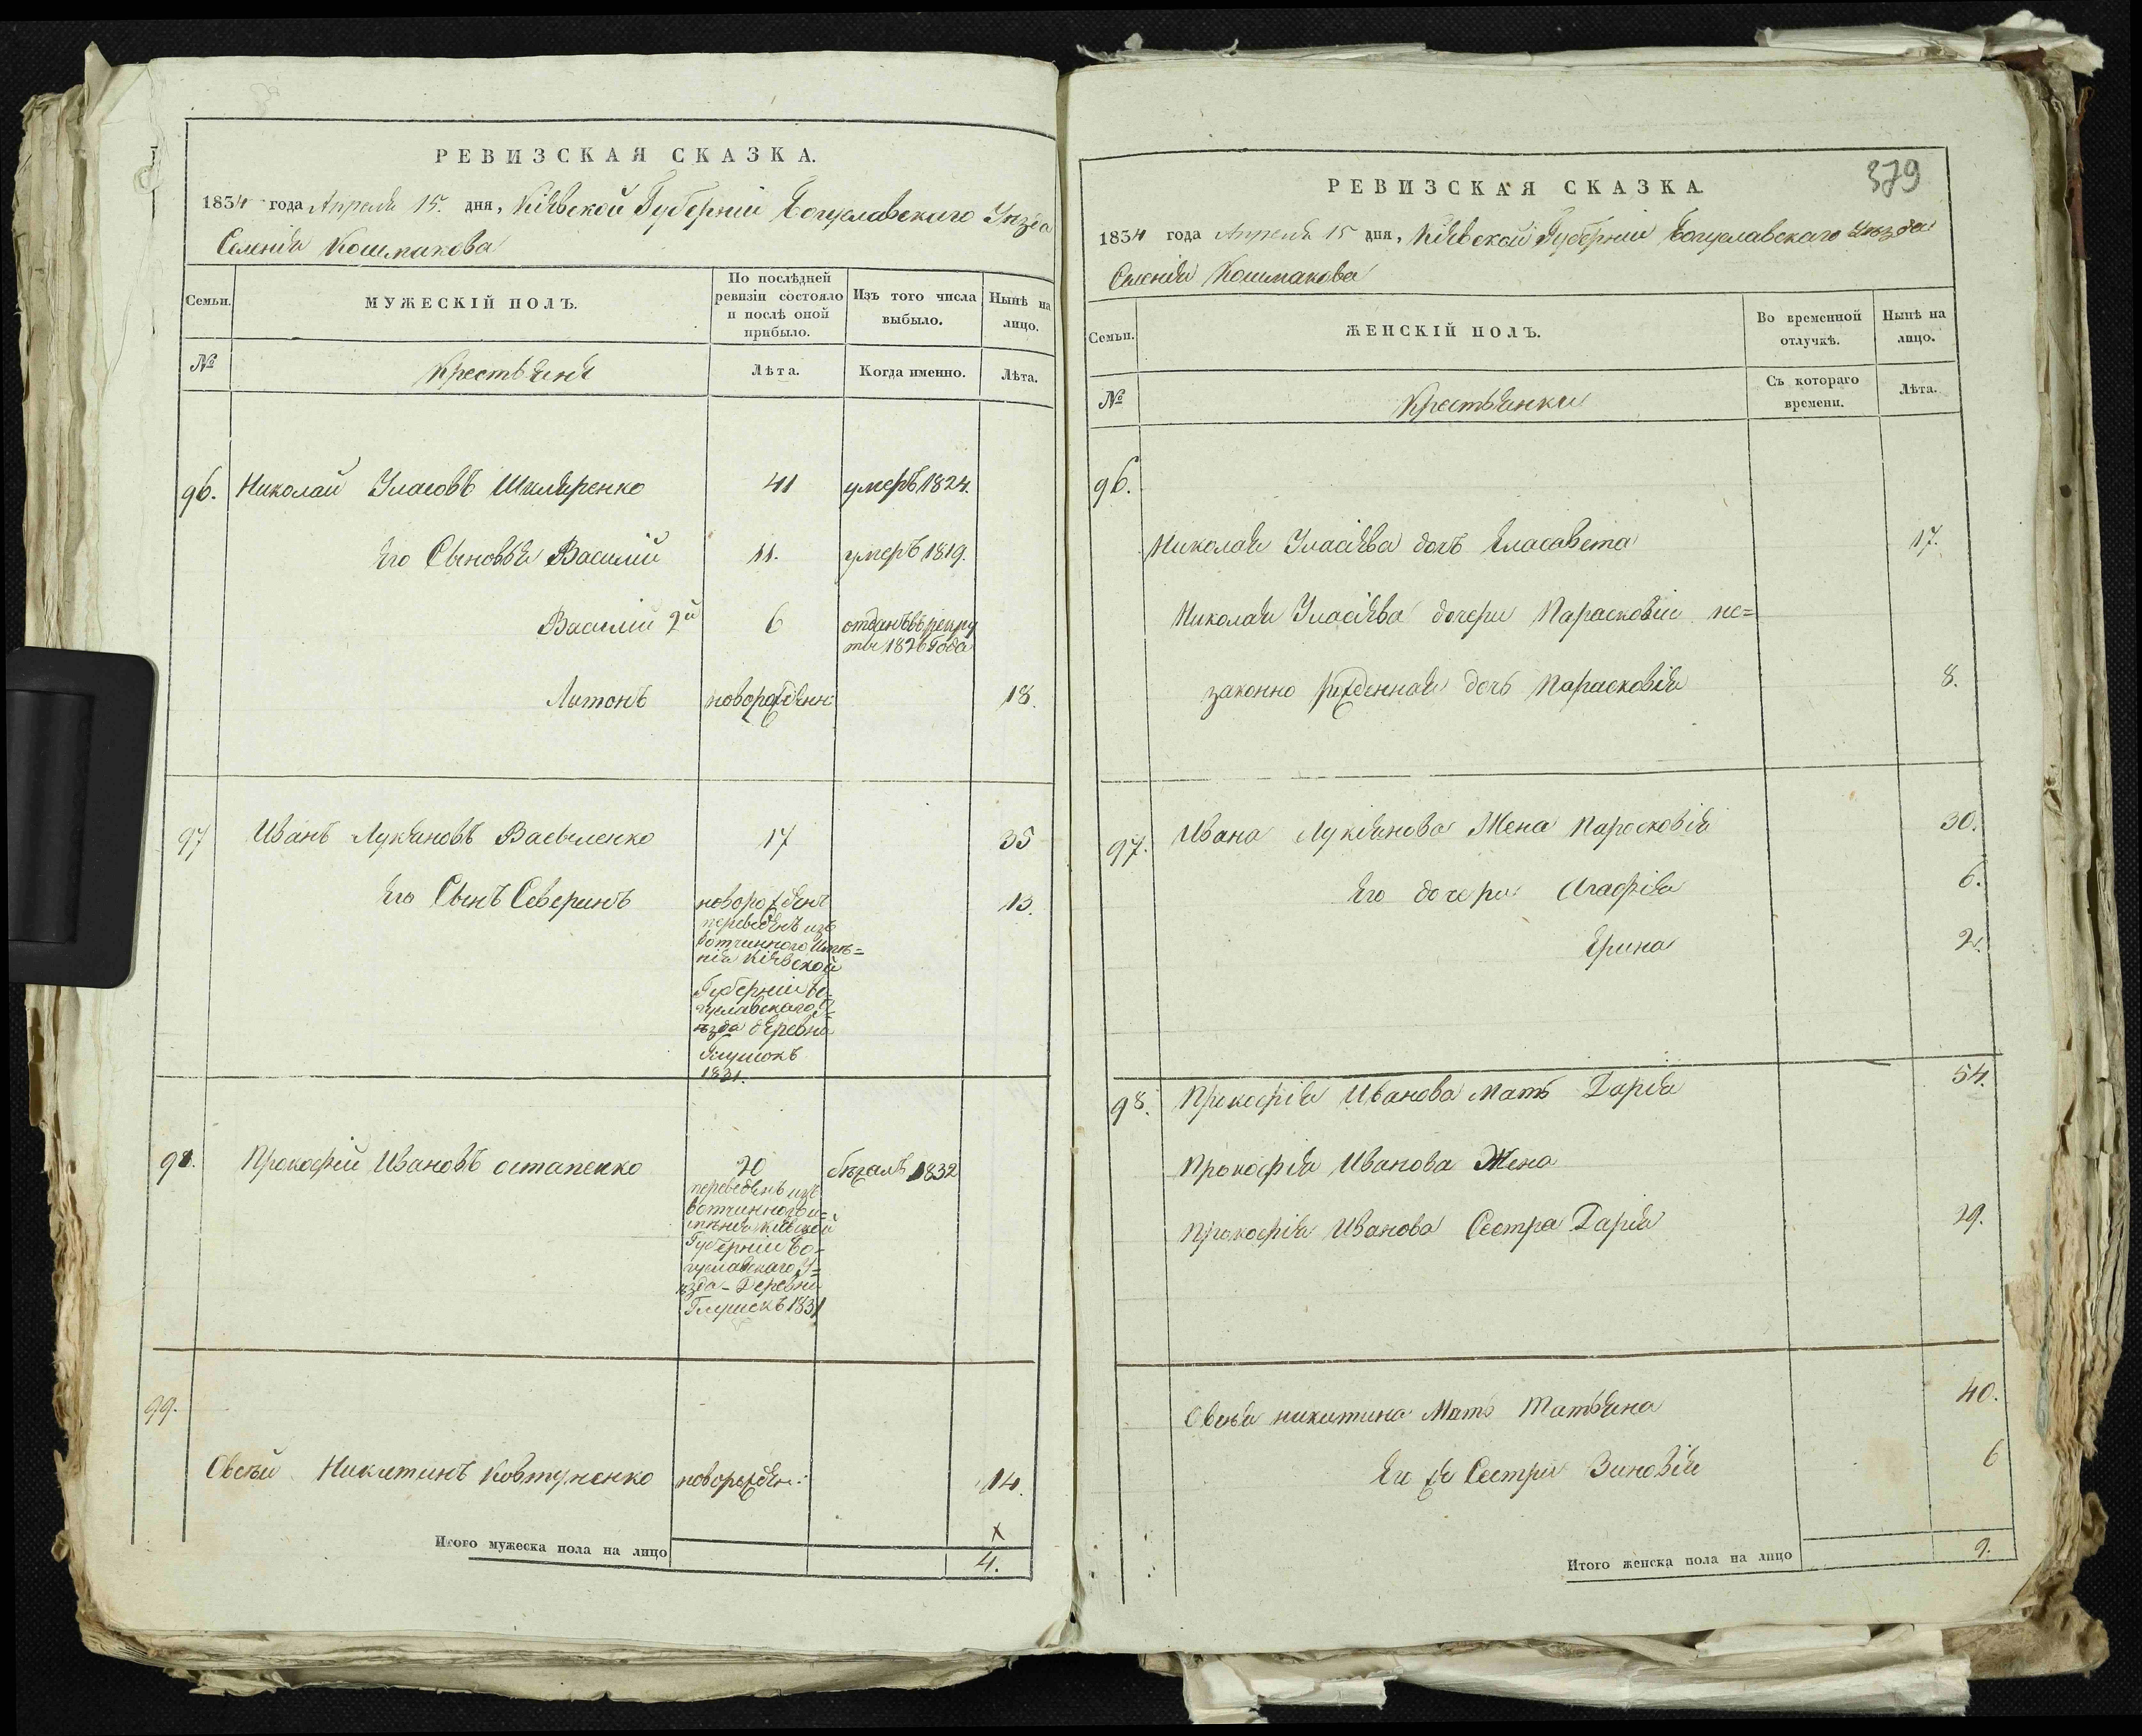 РЕВИЗСКАЯ СКАЗКА.
1834 года Апреля 15. дня, Кіевской Губерніи Богуславскаго Уѣзда
Селенія Кошмакова
Семьи. МУЖЕСКІЙ ПОЛЪ. По послѣдней ревизіи состояло и послѣ оной прибыло. Изъ того числа выбыло. Нынѣ на лицо.
№ Крестьяне Лѣта. Когда именно. Лѣта.
96. Николай Уласовъ Шкляренко 41 умеръ 1824.
Его Сыновья Василій 11. умеръ 1819.
Василій 2й 6 отданъ въ рекру
ты 1826 Года
Антонъ новорожденн 18.
97 Иванъ Лукяновъ Василенко 17 35
Его Сынъ Северинъ новорожденъ 13.
переведенъ изъ
вотчинного Имѣ=
нія Кіевской
Губерніи Бо=
гуславскаго У=
ѣзда деревни
Глушокъ
1831.
98. Прокофій Ивановъ остапенко 20 бѣжалъ 1832
переведенъ изъ
вотчинного и=
мѣнія Кіевской
Губерніи Бо=
гуславскаго У=
ѣзда - Деревни
Глушекъ 1831
99.
Овсѣй Никитинъ Ковтуненко новорожден: 14.
Итого мужеска пола на лицо 4.
379
РЕВИЗСКАЯ СКАЗКА.
1834 года Апреля 15 дня, Кіевской Губерніи Богуславскаго Уѣзда
Селенія Кошмакова
Семьи. ЖЕНСКІЙ ПОЛЪ. Во временной отлучкѣ. Нынѣ на лицо.
№ Крестьянки Съ котораго времени. Лѣта.
96.
Николая Уласіева дочь Еласавета 17.
Николая Уласіева дочери Парасковіи не=
законно рожденная дочь Парасковія 8.
97. Ивана Лукіянова Жена Паросковія 30.
Его дочери Агафія 6.
Ерина 2.
98. Прокофія Иванова Мать Дарія 54.
Прокофія Иванова Жена
Прокофія Иванова Сестра Дарія 29.
Овсѣя никитина Мать Татьяна 40.
Его же Сестра Зиновія 6
Итого женска пола на лицо 9.